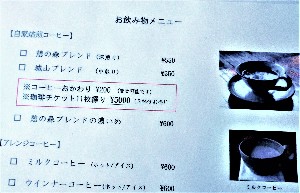 お飲み物メニュー
【自家焙煎コーヒー】
□ 憩の森ブレンド (深煎り) ¥550
□ 城山ブレンド (中煎り) ¥550
※コーヒーおかわり ¥200
※珈琲チケット11枚綴り ¥5000
□ 憩の森ブレンドの濃いめ ¥600
【アレンジコーヒー】
□ ミルクコーヒー (ホット/アイス) ¥600
□ ウインナーコーヒー (ホット/アイス) ¥600
ミルクコーヒー